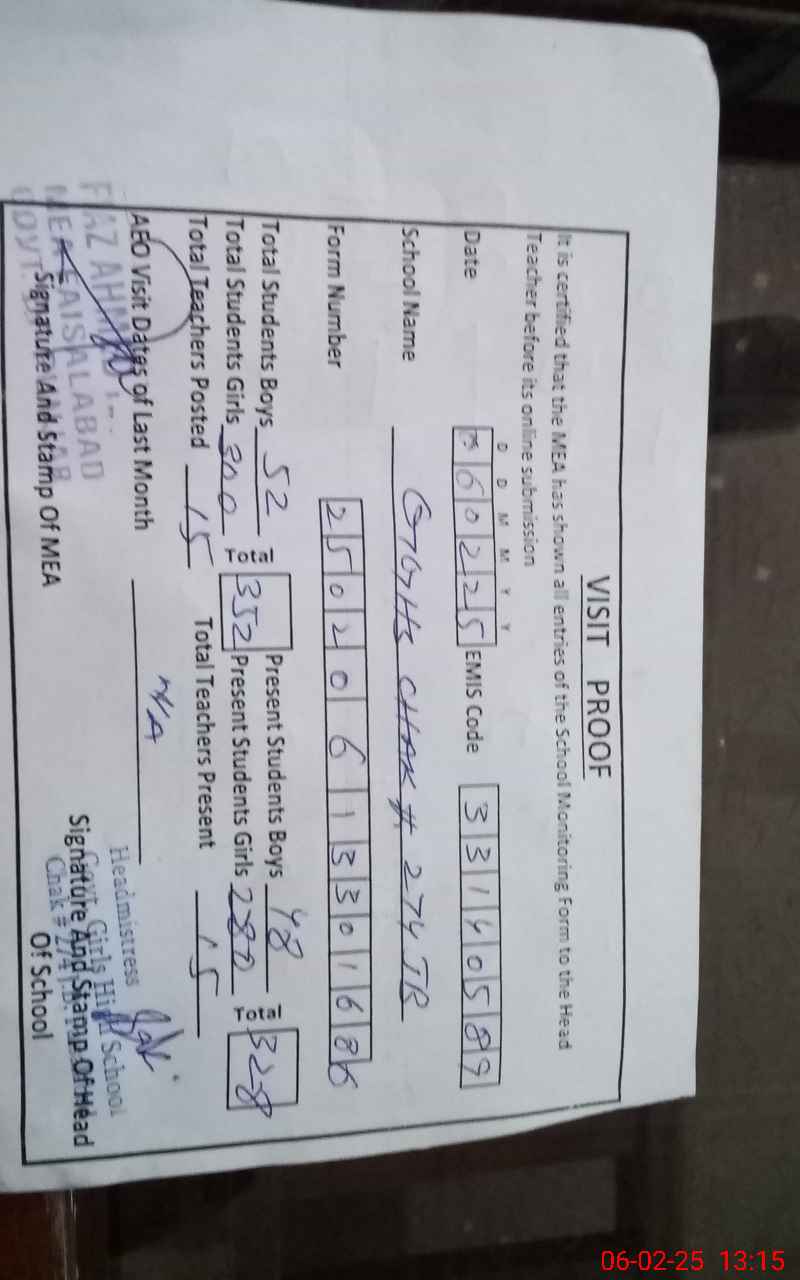 VISIT PROOF
It is certified that the MEA has shown all entries of the School Monitoring Form to the Head
Teacher before its online submission
D D M M Y Y
Date 060225 EMIS Code 33140589
School Name GGHS CHAK # 274 JB
Form Number 2502061330168
Total Students Boys 52 Total 352 Present Students Boys 48 Total 328
Total Students Girls 300 Present Students Girls 280
Total Teachers Posted 15 Total Teachers Present 15
AEO Visit Dates of Last Month N/A
AHM
MEA FAISALABAD
GOVT.
Signature And Stamp Of MEA
Headmistress
Govt. Girls High School
Chak # 274
Signature And Stamp Of Head
Of School
06-02-25 13:15